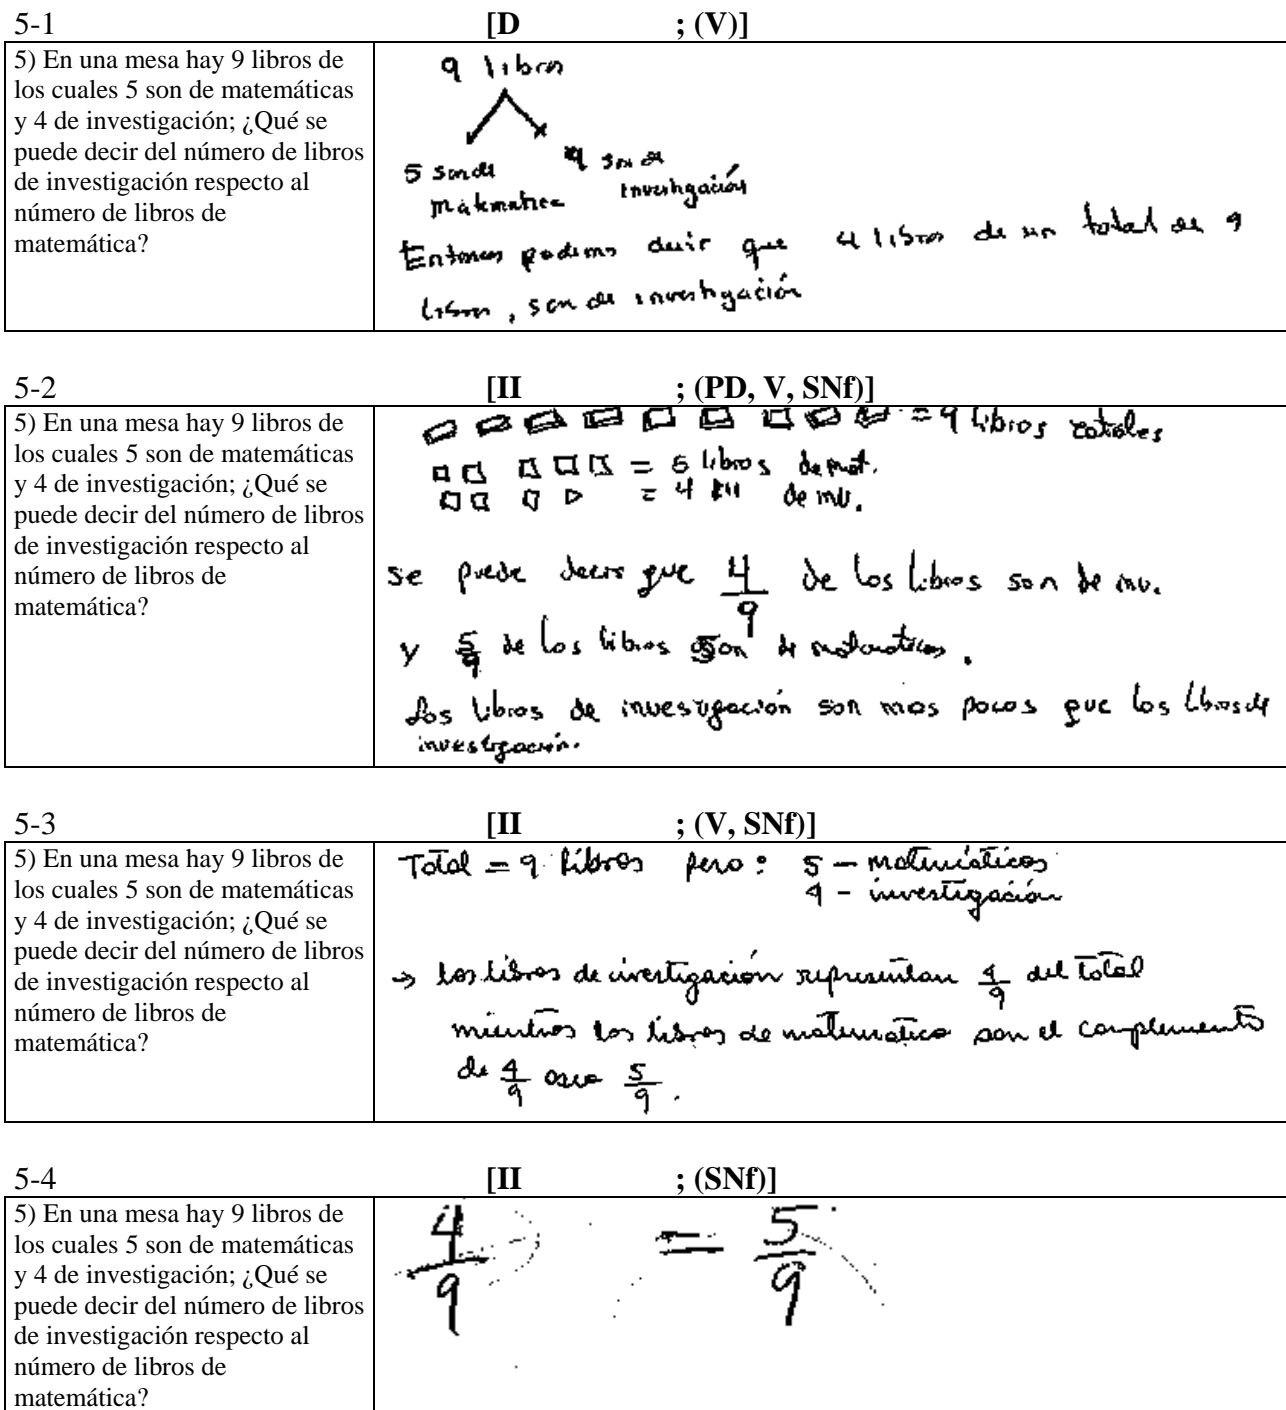 5-1 [D ; (V)]
5) En una mesa hay 9 libros de
los cuales 5 son de matemáticas
y 4 de investigación; ¿Qué se
puede decir del número de libros
de investigación respecto al
número de libros de
matemática?
9 libros
5 son de 4 son de
matematica investigación
Entonces podemos decir que 4 libros de un total de 9
libros, son de investigación
5-2 [II ; (PD, V, SNf)]
5) En una mesa hay 9 libros de
los cuales 5 son de matemáticas
y 4 de investigación; ¿Qué se
puede decir del número de libros
de investigación respecto al
número de libros de
matemática?
= 9 libros totales
= 5 libros de mat.
= 4 de inv.
se puede decir que 4/9 de los libros son de inv.
y 5/9 de los libros son de matematicas.
Los libros de investigación son mas pocos que los libros de
investigación.
5-3 [II ; (V, SNf)]
5) En una mesa hay 9 libros de
los cuales 5 son de matemáticas
y 4 de investigación; ¿Qué se
puede decir del número de libros
de investigación respecto al
número de libros de
matemática?
Total = 9 libros pero: 5 - matemáticas
4 - investigación
→ los libros de investigación representan 4/9 del Total
mientras los libros de matematica son el complemento
de 4/9 osea 5/9.
5-4 [II ; (SNf)]
5) En una mesa hay 9 libros de
los cuales 5 son de matemáticas
y 4 de investigación; ¿Qué se
puede decir del número de libros
de investigación respecto al
número de libros de
matemática?
4/9 = 5/9